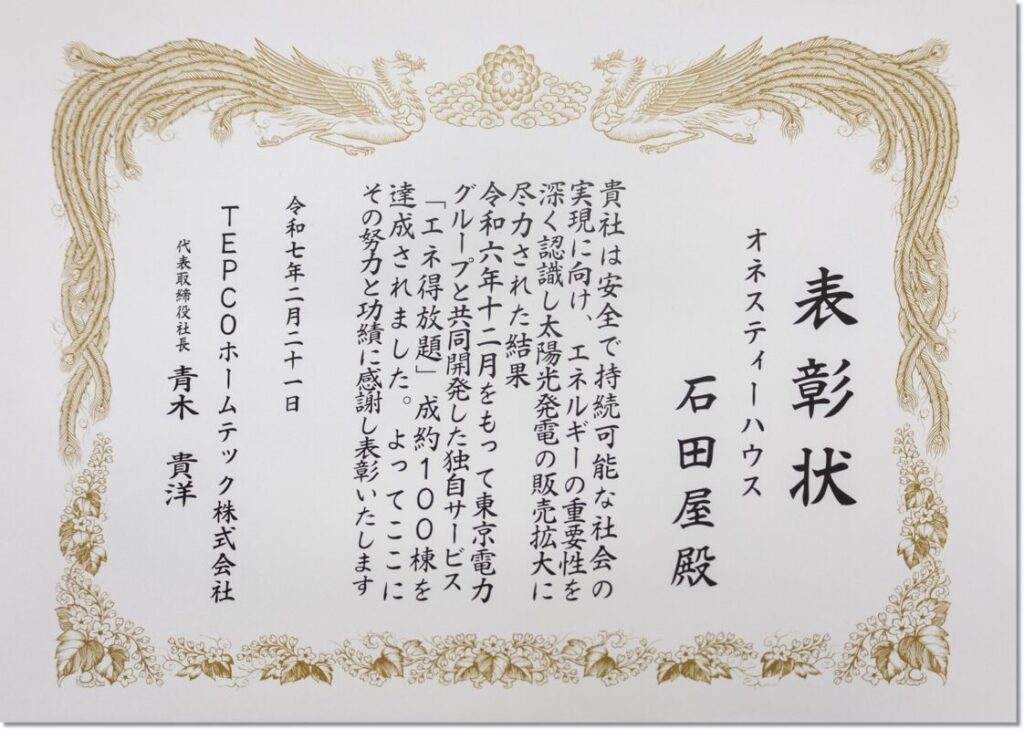 表彰状
オネスティーハウス
石田屋殿
貴社は安全で持続可能な社会の
実現に向け、エネルギーの重要性を
深く認識し太陽光発電の販売拡大に
尽力された結果
令和六年十二月をもって東京電力
グループと共同開発した独自サービス
「エネ得放題」成約100棟を
達成されました。よってここに
その努力と功績に感謝し表彰いたします
令和七年二月二十一日
TEPCOホームテック株式会社
代表取締役社長 青木 貴洋